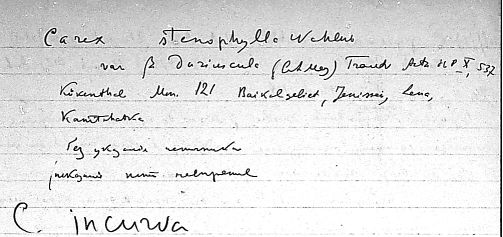 Carex stenophylla Wahlenb
var β Duriuscula (CAMey) Trautv Acta HP X, 537
Kükenthal Mon. 121 Baikalgebiet, Jenissei, Lena,
Kamtchatka
без указания
нет
C. incurva